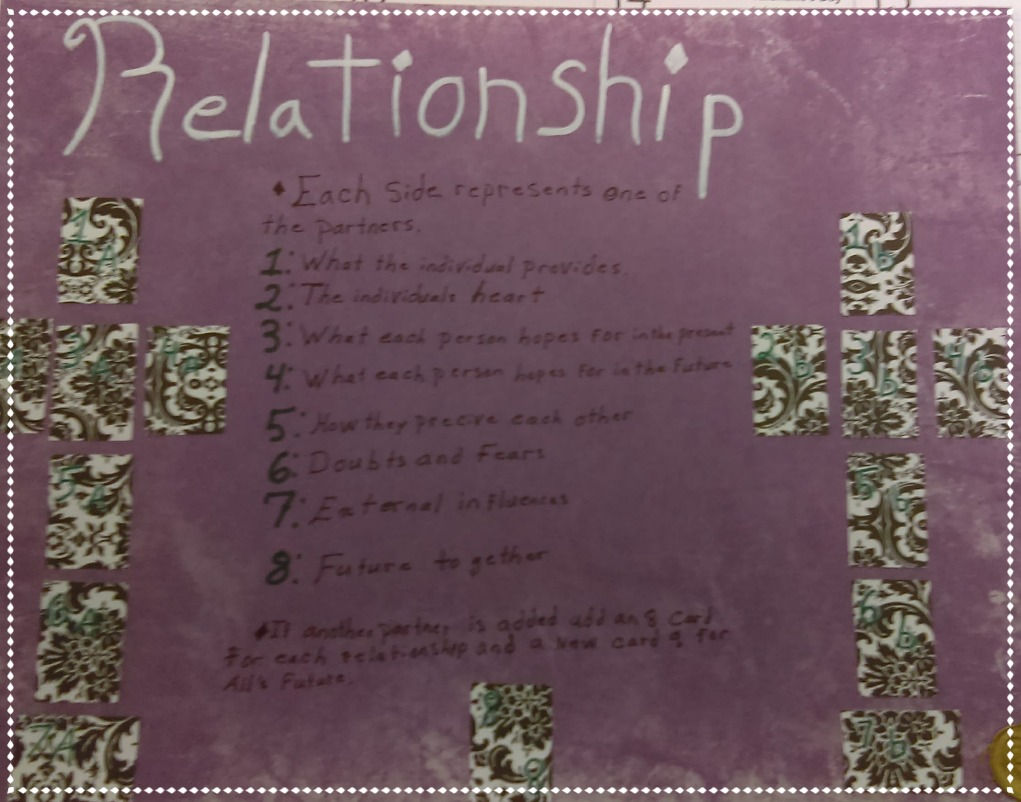 Relationship
Each Side represents one of
the partners.
1: What the individual provides.
2: The individuals heart
3: What each person hopes for in the present
4: What each person hopes for in the Future
5: How they precive each other
6: Doubts and Fears
7: External influences
8: Future together
If another partner is added add an 8 card
for each relationship and a new card 9 for
All's Future.
1 A
1 b
3 A
4 a
2 b
3 b
4 b
5 A
5 b
6 A
6 b
8
9
7A
7 b